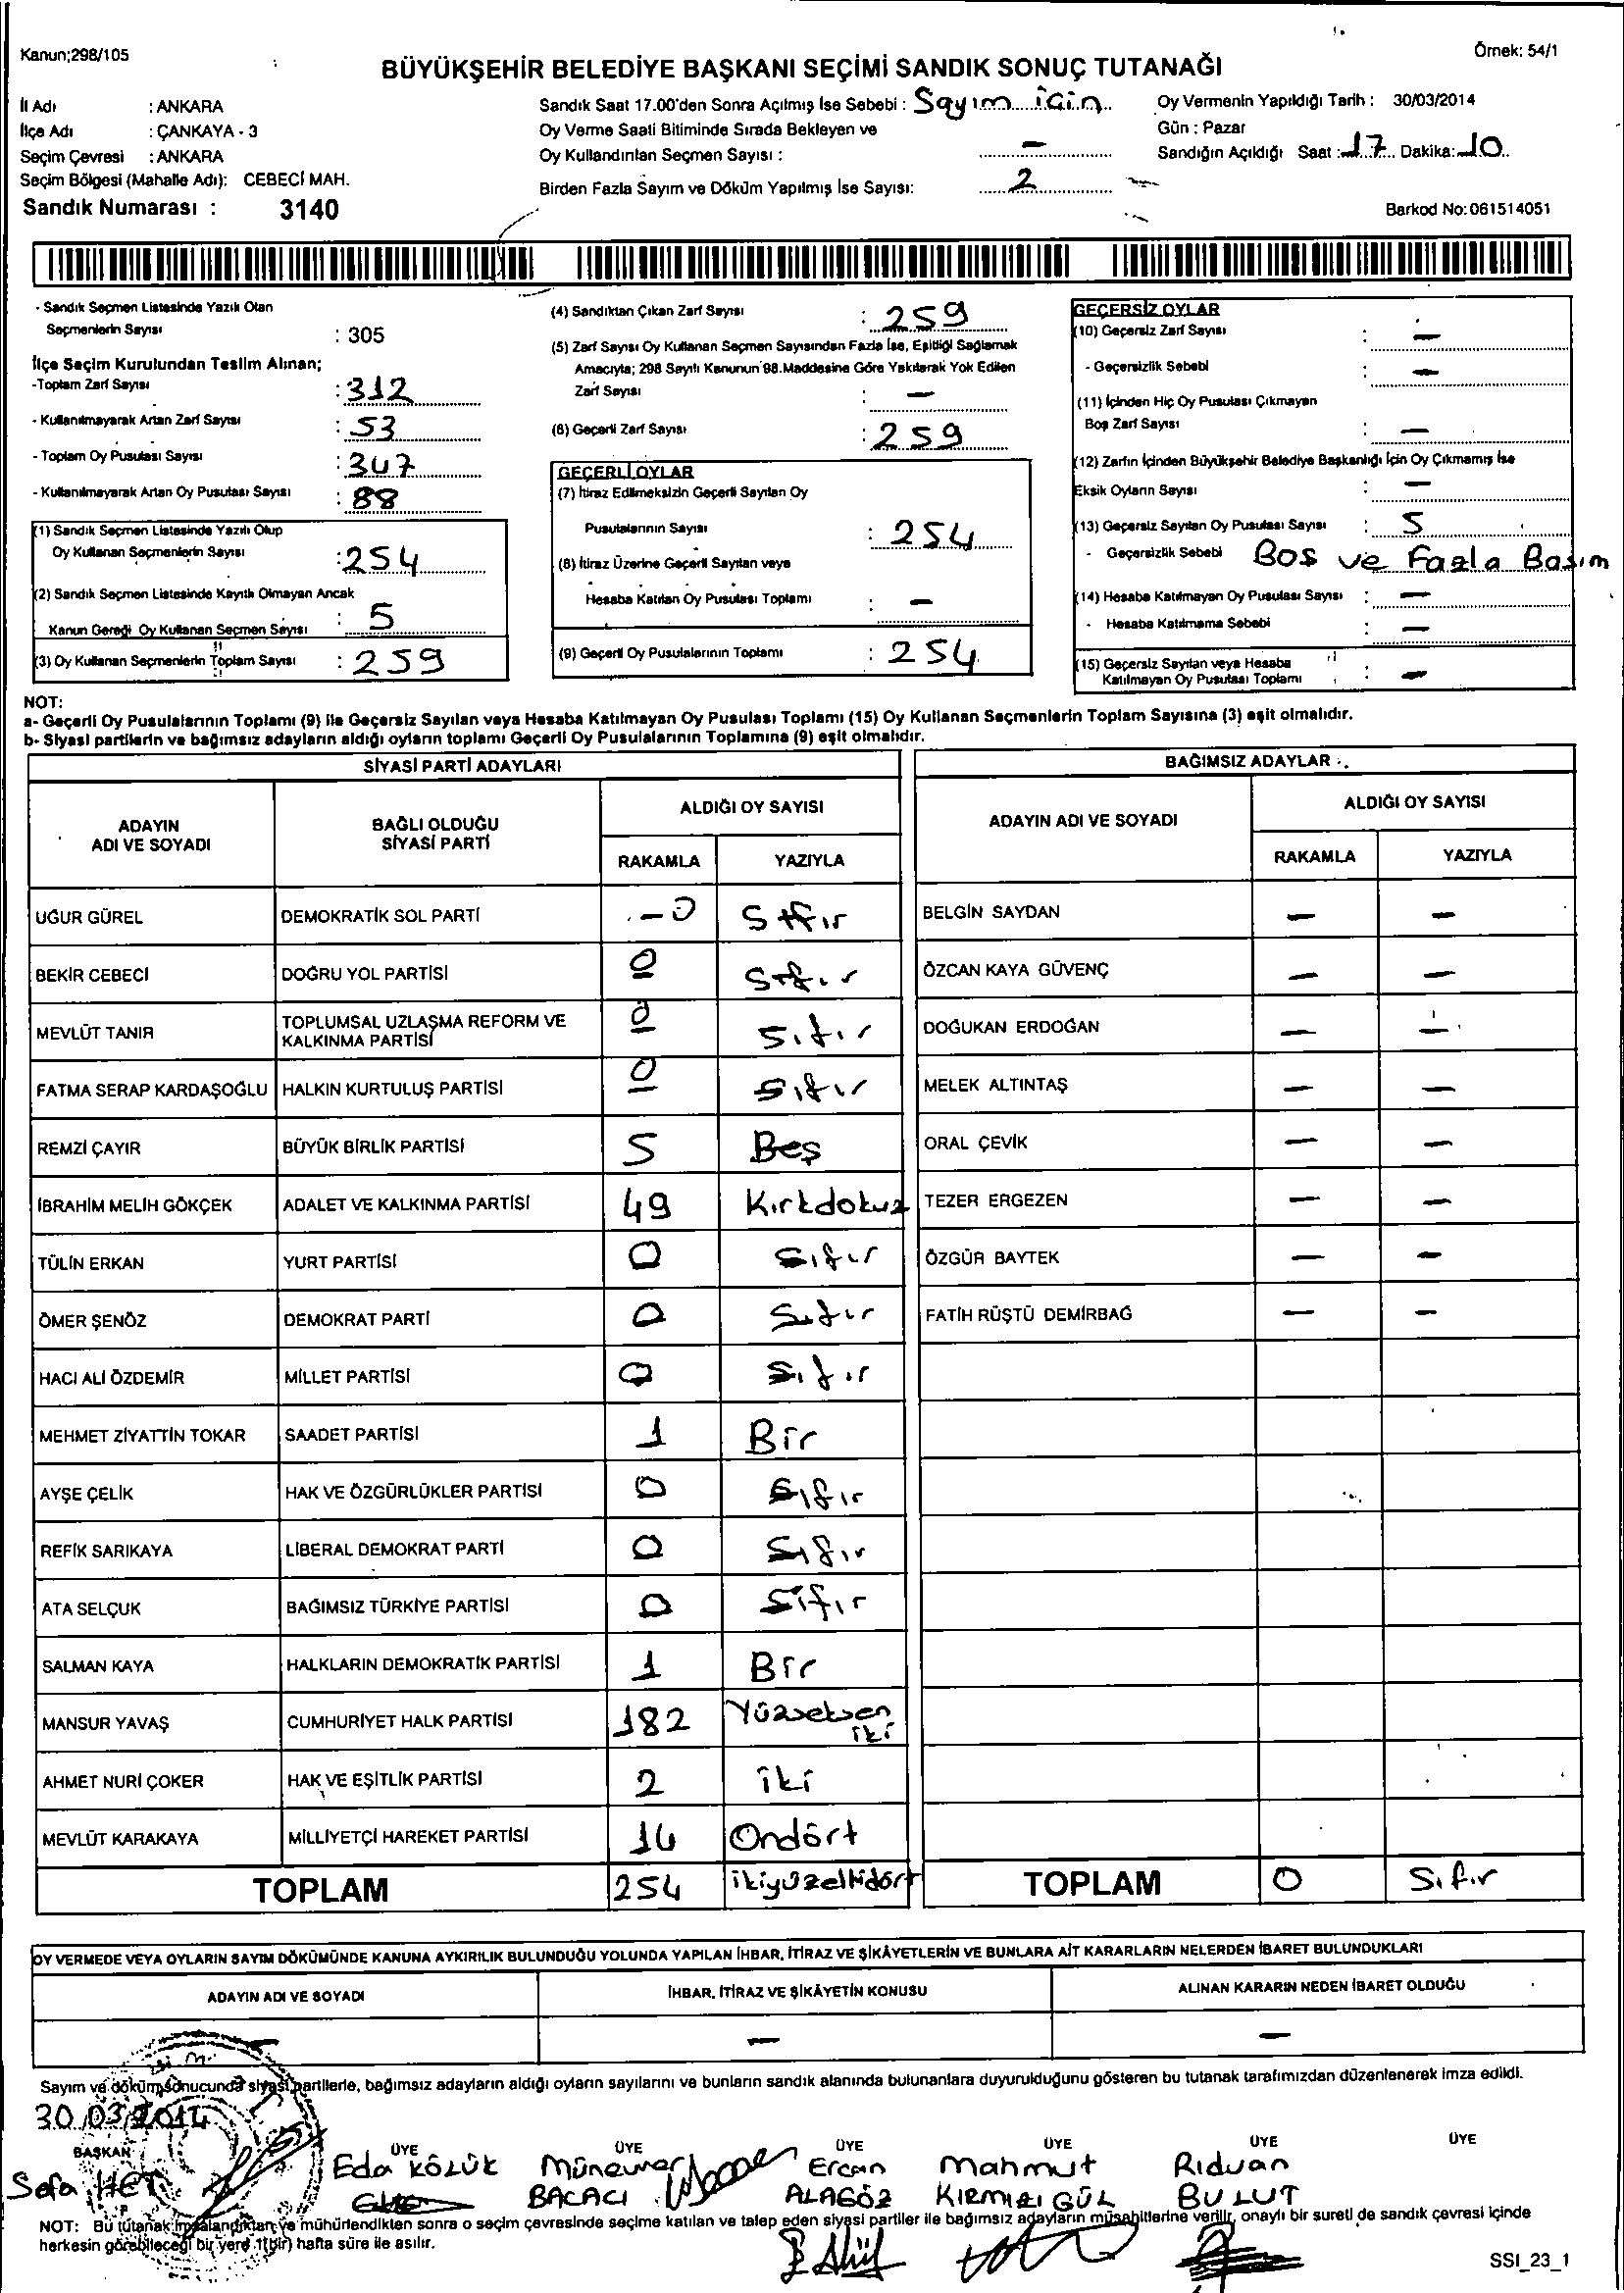 Kanun;298/105
Örnek: 54/1
BÜYÜKŞEHİR BELEDİYE BAŞKANI SEÇİMİ SANDIK SONUÇ TUTANAĞI
İl Adı : ANKARA
İlçe Adı : ÇANKAYA - 3
Seçim Çevresi : ANKARA
Seçim Bölgesi (Mahalle Adı): CEBECİ MAH.
Sandık Numarası : 3140
Sandık Saat 17.00'den Sonra Açılmış İse Sebebi : Sayım için
Oy Verme Saati Bitiminde Sırada Bekleyen ve
Oy Kullandırılan Seçmen Sayısı : –
Birden Fazla Sayım ve Döküm Yapılmış İse Sayısı: 2
Oy Vermenin Yapıldığı Tarih : 30/03/2014
Gün : Pazar
Sandığın Açıldığı Saat : 17 Dakika: 10
Barkod No:061514051
- Sandık Seçmen Listesinde Yazılı Olan
Seçmenlerin Sayısı : 305
İlçe Seçim Kurulundan Teslim Alınan;
-Toplam Zarf Sayısı : 312
- Kullanılmayarak Artan Zarf Sayısı : 53
- Toplam Oy Pusulası Sayısı : 347
- Kullanılmayarak Artan Oy Pusulası Sayısı : 88
(1) Sandık Seçmen Listesinde Yazılı Olup
Oy Kullanan Seçmenlerin Sayısı : 254
(2) Sandık Seçmen Listesinde Kayıtlı Olmayan Ancak
Kanun Gereği Oy Kullanan Seçmen Sayısı : 5
(3) Oy Kullanan Seçmenlerin Toplam Sayısı : 259
(4) Sandıktan Çıkan Zarf Sayısı : 259
(5) Zarf Sayısı Oy Kullanan Seçmen Sayısından Fazla İse, Eşitliği Sağlamak
Amacıyla; 298 Sayılı Kanunun 98.Maddesine Göre Yakılarak Yok Edilen
Zarf Sayısı : –
(6) Geçerli Zarf Sayısı : 259
GEÇERLİ OYLAR
(7) İtiraz Edilmeksizin Geçerli Sayılan Oy
Pusulalarının Sayısı : 254
(8) İtiraz Üzerine Geçerli Sayılan veya
Hesaba Katılan Oy Pusulası Toplamı : –
(9) Geçerli Oy Pusulalarının Toplamı : 254
GEÇERSİZ OYLAR
(10) Geçersiz Zarf Sayısı : –
- Geçersizlik Sebebi : –
(11) İçinden Hiç Oy Pusulası Çıkmayan
Boş Zarf Sayısı : –
(12) Zarfın İçinden Büyükşehir Belediye Başkanlığı İçin Oy Çıkmamış İse
Eksik Oyların Sayısı : –
(13) Geçersiz Sayılan Oy Pusulası Sayısı : 5
- Geçersizlik Sebebi Boş ve Fazla Basım
(14) Hesaba Katılmayan Oy Pusulası Sayısı : –
- Hesaba Katılmama Sebebi : –
(15) Geçersiz Sayılan veya Hesaba
Katılmayan Oy Pusulası Toplamı : –
NOT:
a- Geçerli Oy Pusulalarının Toplamı (9) ile Geçersiz Sayılan veya Hesaba Katılmayan Oy Pusulası Toplamı (15) Oy Kullanan Seçmenlerin Toplam Sayısına (3) eşit olmalıdır.
b- Siyasi partilerin ve bağımsız adayların aldığı oyların toplamı Geçerli Oy Pusulalarının Toplamına (9) eşit olmalıdır.
SİYASİ PARTİ ADAYLARI
ADAYIN ADI VE SOYADI
BAĞLI OLDUĞU SİYASİ PARTİ
ALDIĞI OY SAYISI
RAKAMLA YAZIYLA
UĞUR GÜREL DEMOKRATİK SOL PARTİ - 0 Sıfır
BEKİR CEBECİ DOĞRU YOL PARTİSİ 0 Sıfır
MEVLÜT TANIR TOPLUMSAL UZLAŞMA REFORM VE KALKINMA PARTİSİ 0 Sıfır
FATMA SERAP KARDAŞOĞLU HALKIN KURTULUŞ PARTİSİ 0 Sıfır
REMZİ ÇAYIR BÜYÜK BİRLİK PARTİSİ 5 Beş
İBRAHİM MELİH GÖKÇEK ADALET VE KALKINMA PARTİSİ 49 Kırkdokuz
TÜLİN ERKAN YURT PARTİSİ 0 Sıfır
ÖMER ŞENÖZ DEMOKRAT PARTİ 0 Sıfır
HACI ALİ ÖZDEMİR MİLLET PARTİSİ 0 Sıfır
MEHMET ZİYATTİN TOKAR SAADET PARTİSİ 1 Bir
AYŞE ÇELİK HAK VE ÖZGÜRLÜKLER PARTİSİ 0 Sıfır
REFİK SARIKAYA LİBERAL DEMOKRAT PARTİ 0 Sıfır
ATA SELÇUK BAĞIMSIZ TÜRKİYE PARTİSİ 0 Sıfır
SALMAN KAYA HALKLARIN DEMOKRATİK PARTİSİ 1 Bir
MANSUR YAVAŞ CUMHURİYET HALK PARTİSİ 182 Yüzseksen iki
AHMET NURİ ÇOKER HAK VE EŞİTLİK PARTİSİ 2 iki
MEVLÜT KARAKAYA MİLLİYETÇİ HAREKET PARTİSİ 14 Ondört
TOPLAM 254 ikiyüzellidört
BAĞIMSIZ ADAYLAR
ADAYIN ADI VE SOYADI
ALDIĞI OY SAYISI
RAKAMLA YAZIYLA
BELGİN SAYDAN – –
ÖZCAN KAYA GÜVENÇ – –
DOĞUKAN ERDOĞAN – –
MELEK ALTINTAŞ – –
ORAL ÇEVİK – –
TEZER ERGEZEN – –
ÖZGÜR BAYTEK – –
FATİH RÜŞTÜ DEMİRBAĞ – –
TOPLAM 0 Sıfır
OY VERMEDE VEYA OYLARIN SAYIM DÖKÜMÜNDE KANUNA AYKIRILIK BULUNDUĞU YOLUNDA YAPILAN İHBAR, İTİRAZ VE ŞİKÂYETLERİN VE BUNLARA AİT KARARLARIN NELERDEN İBARET BULUNDUKLARI
ADAYIN ADI VE SOYADI İHBAR, İTİRAZ VE ŞİKÂYETİN KONUSU ALINAN KARARIN NEDEN İBARET OLDUĞU
– – –
Sayım ve döküm sonucunda siyasi partilerle, bağımsız adayların aldığı oyların sayılarını ve bunların sandık alanında bulunanlara duyurulduğunu gösteren bu tutanak tarafımızdan düzenlenerek imza edildi.
30.03.2014
BAŞKAN ÜYE ÜYE ÜYE ÜYE ÜYE ÜYE
Sefa HET
Eda KÖZÜK
Münevver BACACI
Ercan ALAGÖZ
Mahmut KIRMIZI GÜL
Rıdvan BULUT
NOT: Bu tutanak imzalandıktan ve mühürlendikten sonra o seçim çevresinde seçime katılan ve talep eden siyasi partiler ile bağımsız adayların müşahitlerine verilir, onaylı bir sureti de sandık çevresi içinde
herkesin görebileceği bir yere 1(bir) hafta süre ile asılır.
SSI_23_1